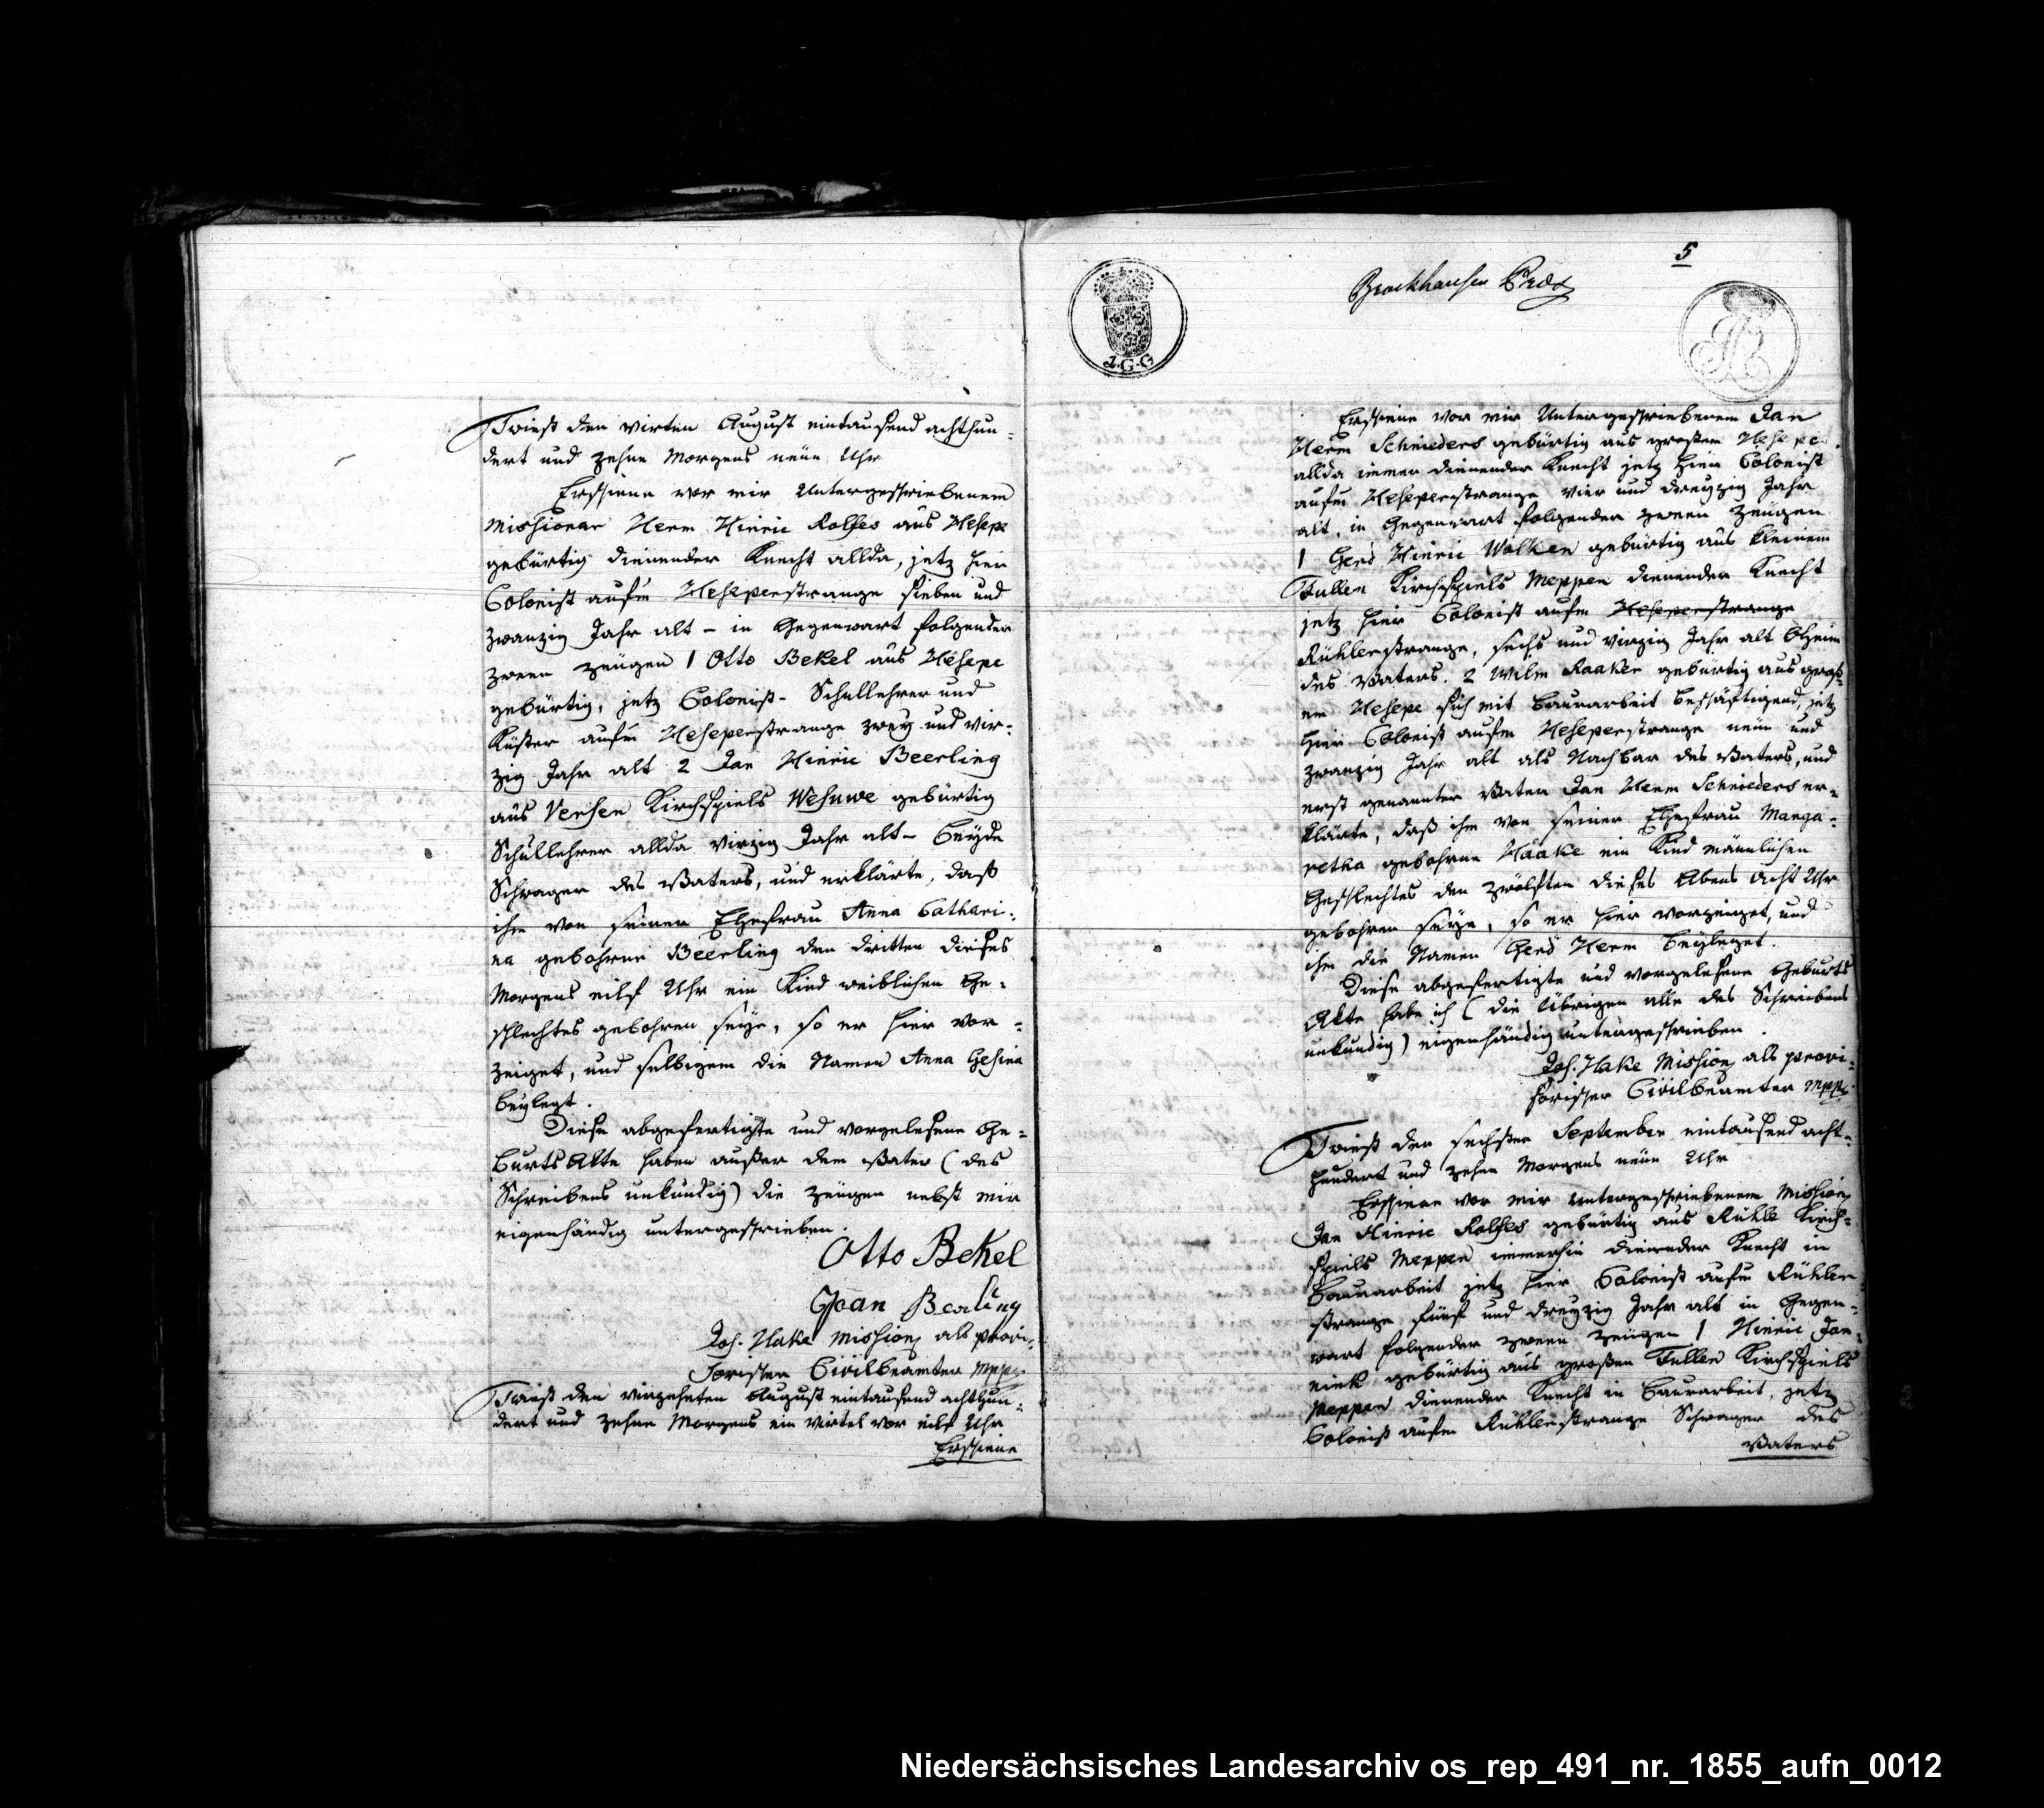 Twist den virten August eintausend achthun-
dert und zehne Morgens neün Uhr
Erschiene vor mir Untergeschriebenem
Missionar Herm Hinric Rolfes aus Hesepe
gebürtig dienender Knecht allda, jetz hier
Colonist aufm Heseperstrange sieben und
zwanzig Jahr alt – in Gegenwart folgender
zween zeügen 1 Otto Bekel aus Hesepe
gebürtig, jetz Colonist- Schullehrer und
Küster aufm Heseperstrange zwey und vir-
zig Jahr alt 2 Jan Hinric Beerling
aus Versen Kirchspiels Wesuwe gebürtig
Schullehrer allda virzig Jahr alt – beyde
Schwager des Vaters, und erklärte, daß
ihm von seiner Ehefrau Anna Cathari-
na gebohrne Beerling den dritten dieses
Morgens eilf Uhr ein Kind weiblichen Ge-
schlechtes gebohren seye, so er hier vor-
zeiget, und selbigem die Namen Anna Gesina
beylegt.
Diese abgefertigte und vorgelesene Ge-
burts Akte haben außer dem Vater (des
Schreibens unkundig) die zeügen nebst mir
eigenhändig untergeschrieben.
Otto Bekel
Joan Berling
Joh. Hake Mission als provi-
sorischer Civilbeamter mppr
Twist den virzehnten August eintausend achthun-
dert und zehne Morgens ein virtel vor eilf Uhr
Erschiene
5
Brockhausen
J.G.G
Erschiene vor mir Untergeschriebenem Jan
Herm Schnieders gebürtig aus großem Hesepe
allda immer dienender Knecht jetz hier Colonist
aufm Heseperstrange vier und dreyzig Jahr
alt, in Gegenwart folgender zween zeügen
1 Gerd Hinric Wolken gebürtig aus kleinem
Fullen Kirchspiels Meppen dienender Knecht
jetz hier Colonist aufm Heseperstrange
Rühlerstrange, sechs und virzig Jahr alt Oheim
des Vaters. 2 Wilm Raaker gebürtig aus groß-
em Hesepe sich mit Baurarbeit beschäftigend, jetz
hier Colonist aufm Heseperstrange neün und
zwanzig Jahr alt als Nachbar des Vaters, und
erst genannter Vater Jan Herm Schnieders er-
klärte, daß ihm von seiner Ehefrau Marga-
retha gebohrne Haake ein Kind männlichen
Geschlechtes den zwölften dieses Abens acht Uhr
gebohren seye, so er hier vorzeiget, und
ihm die Namen Gerd Herm beyleget.
Diese abgefertigte und vorgelesene Geburts
Akte habe ich (die Übrigen alle des Schreibens
unkundig) eigenhändig untergeschrieben.
Joh. Hake Mission als provi-
sorischer Civilbeamter mppr
Twist den sechsten September eintausend acht-
hundert und zehne Morgens neün Uhr
Erschiene vor mir untergeschriebenem Mission
Jan Hinric Rolfes gebürtig aus Rühle Kirch-
spiels Meppen immerhin dienender Knecht in
Baurarbeit jetz hier Colonist aufm Rühler-
strange fünf und dreyzig Jahr alt in Gegen-
wart folgender zween zeügen 1 Hinric Jan-
nink gebürtig aus großen Fullen Kirchspiels
Meppen dienender Knecht in Baurarbeit, jetz
Colonist aufm Rühlerstrange Schwager des
Vaters
Niedersächsisches Landesarchiv os_rep_491_nr._1855_aufn_0012